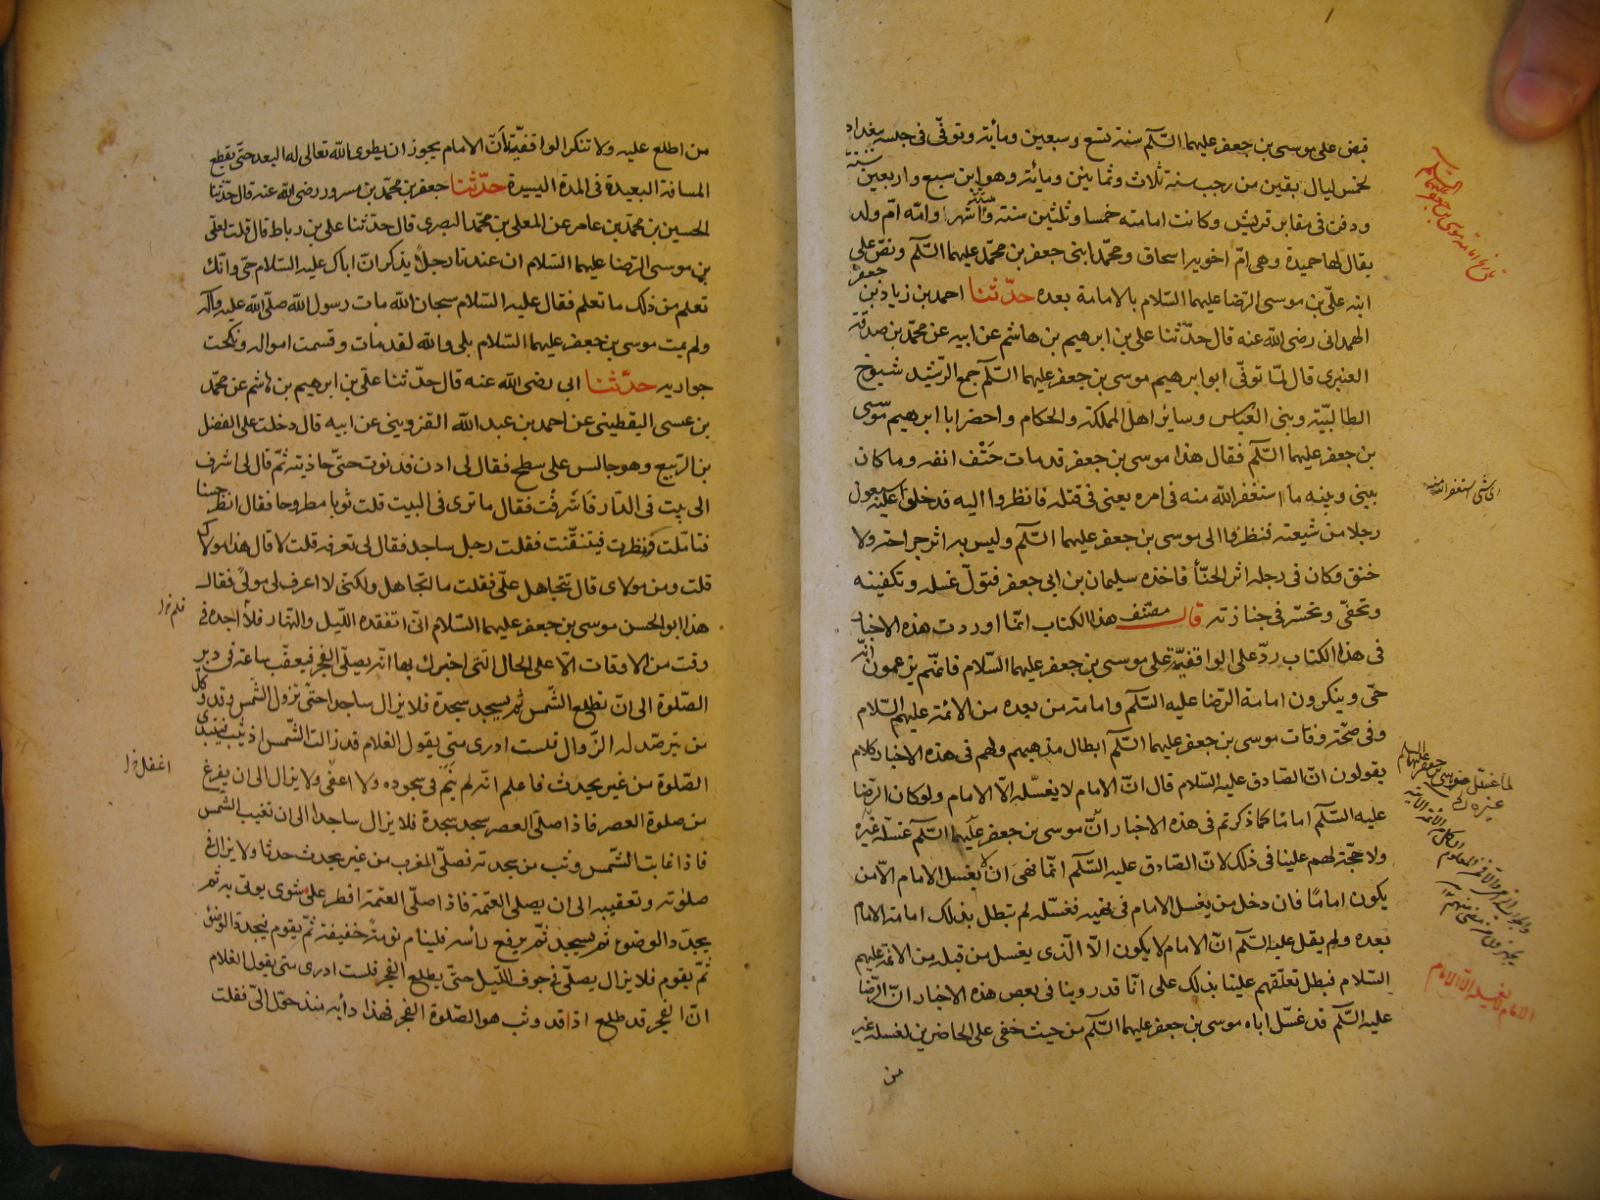 قبض على موسى بن جعفر عليهما السّلم سنة تسع وسبعين ومأية وتوفّى في حبسه ببغداد
لخمس ليال بقين من رجب سنة ثلاث وثمانين ومأية وهو ابن سبع واربعين سنة
ودفن في مقابر قريش وكانت امامته خمسا وثلثين سنة واشهرا وامّه امّ ولد
يقال لها حميدة وهى امّ اخويه اسحاق ومحمّد ابنى جعفر بن محمّد عليهما السّلم ونصّ على
ابنه علىّ بن موسى الرّضا عليهما السّلام بالامامة بعده حدّثنا احمد بن زياد بن جعفر
الهمدانى رضى الله عنه قال حدّثنا على بن ابرهيم بن هاشم عن ابيه عن محمّد بن صدقة
العنبرى قال لمّا توفّى ابو ابرهيم موسى بن جعفر عليهما السّلم جمع الرّشيد شيوخ
الطالبيّة وبنى العبّاس وساير اهل المملكة والحكام واحضر ابا ابرهيم موسى
بن جعفر عليهما السّلم فقال هذا موسى بن جعفر قد مات حَتْف انفه وما كان
بينى وبينه ما استغفر الله منه في امره يعنى في قتله فانظروا اليه فدخلوا عليه سبعون
رجلا من شيعته فنظروا الى موسى بن جعفر عليهما السّلم وليس به اثر جراحة ولا
خنق وكان في رجله اثر الحنّأ فاخذه سليمان بن ابى جعفر فتولّى غسله وتكفينه
وتحفّى وتحسّر في جنازته قال مصنف هذا الكتاب انمّا اوردت هذه الاخبار
في هذا الكتاب ردّ على الواقفيّة على موسى بن جعفر عليهما السّلام فانهّم يزعمون انّه
حىّ وينكرون امامة الرّضا عليه السّلم وامامة من بعده من الائمّة عليهم السّلام
وفى صحّة وفات موسى بن جعفر عليهما السّلم ابطال مذهبهم ولهم في هذه الاخبار كلام
يقولون انّ الصّادق عليه السّلام قال انّ الامام لا يغسّله الّا الامام ولو كان الرّضا
عليه السّلم امامًا كما ذكرتم في هذه الاخبار انّ موسى بن جعفر عليهما السّلم غسّله غيره
ولا حجّة لهم علينا في ذلك لانّ الصّادق عليه السّلم انمّا نهى ان يغسل الامام الّا من
يكون امامًا فان دخل من يغسل الامام في نهيه فغسّله لم تبطل بذلك امامة الامام
بعده ولم يقل عليه السّلم انّ الامام لا يكون الّا الّذى يغسل من قبله من الائمّة عليهم
السّلام فبطل تعلّقهم علينا بذلك على انّا قد روينا في بعض هذه الاخبار انّ الرّضا
عليه السّلم قد غسّل اباه موسى بن جعفر عليهما السّلم من حيث خفى على الحاضرين لغسله غير
من
تاريخ امامة موسى بن جعفر عليهما السّلم
الامام لا يغسله الّا الامام
من اطلع عليه ولا تنكر الواقفيّة لأنّ الامام يجوز ان يطوى الله تعالى له البعد حتّى يقطع
المسافة البعيدة في المدة اليسيرة حدّثنا جعفر بن محمّد بن مسرور رضى الله عنه قال حدّثنا
الحسين بن محمّد بن عامر عن المعلى بن محمّد البصرى قال حدّثنا على بن رباط قال قلت لعلى
بن موسى الرّضا عليهما السّلام ان عندنا رجلًا يذكر انّ اباك عليه السّلام حىّ وانّك
تعلم من ذلك ما تعلم فقال عليه السّلام سبحان الله مات رسول الله صلّى الله عليه وآله
ولم يمت موسى بن جعفر عليهما السّلام بلى والله لقد مات وقسمت امواله ونكحت
جواريه حدّثنا ابى رضى الله عنه قال حدّثنا علىّ بن ابرهيم بن هاشم عن محمّد
بن عيسى اليقطينى عن احمد بن عبد الله القزوينى عن ابيه قال دخلت على الفضل
بن الرّبيع وهو جالس على سطح فقال لى ادن فدنوت حتىّ حاذيته ثمّ قال لى اشرف
الى بيت في الدّار فاشرفت فقال ما ترى في البيت قلت ثوبا مطروحا فقال انظر حسنا
فتامّلت ونظرت فتيقّنت فقلت رجل ساجد فقال لى تعرفه قلت لا قال هذا مولاك
قلت ومن مولاى قال تتجاهل علىّ فقلت ما اتجاهل ولكنّى لا اعرف لى مولىً فقال
هذا ابو الحسن موسى بن جعفر عليهما السّلام انّى اتفقده اللّيل والنّهار فلا اجده في
وقت من الاوقات الّا على الحال الّتى اخبرك بها انّه يصلّى الفجر فيعقّب ساعة في دبر
الصّلوة الى انّ تطلع الشّمس ثم يسجد سجدة فلا يزال ساجدا حتّى تزول الشّمس وقد وكّل
من يترصّد له الزّوال فلست ادرى متى يقول الغلام قد زالت الشّمس اذ يثب فيبتدى
الصّلوة من غير يحدث فاعلم انّه لم ينم في سجوده ولا اعفى ولا يزال الى ان يفرغ
من صلوة العصر فاذا صلّى العصر سجد سجدة فلا يزال ساجدا الى ان تغيب الشّمس
فاذا غابت الشّمس وثب من سجدته فصلّى المغرب من غير يحدث حدثا ولا يزال في
صلوته وتعقيبه الى ان يصلى العتمة فاذا صلّى العتمة افطر على شوى يوتى به ثم
يجدّد الوضوء ثم يسجد ثمّ يرفع رأسه فلينام نومةً خفيفة ثمّ يقوم فيجدّد الوضوء
ثمّ يقوم فلا يزال يصلّى في جوف اللّيل حتىّ يطلع الفجر فلست ادرى متى يقول الغلام
انّ الفجر قد طلع اذا قد وثب هو الصّلوة الفجر فهذا دأبه منذ حمّل الىّ فقلت